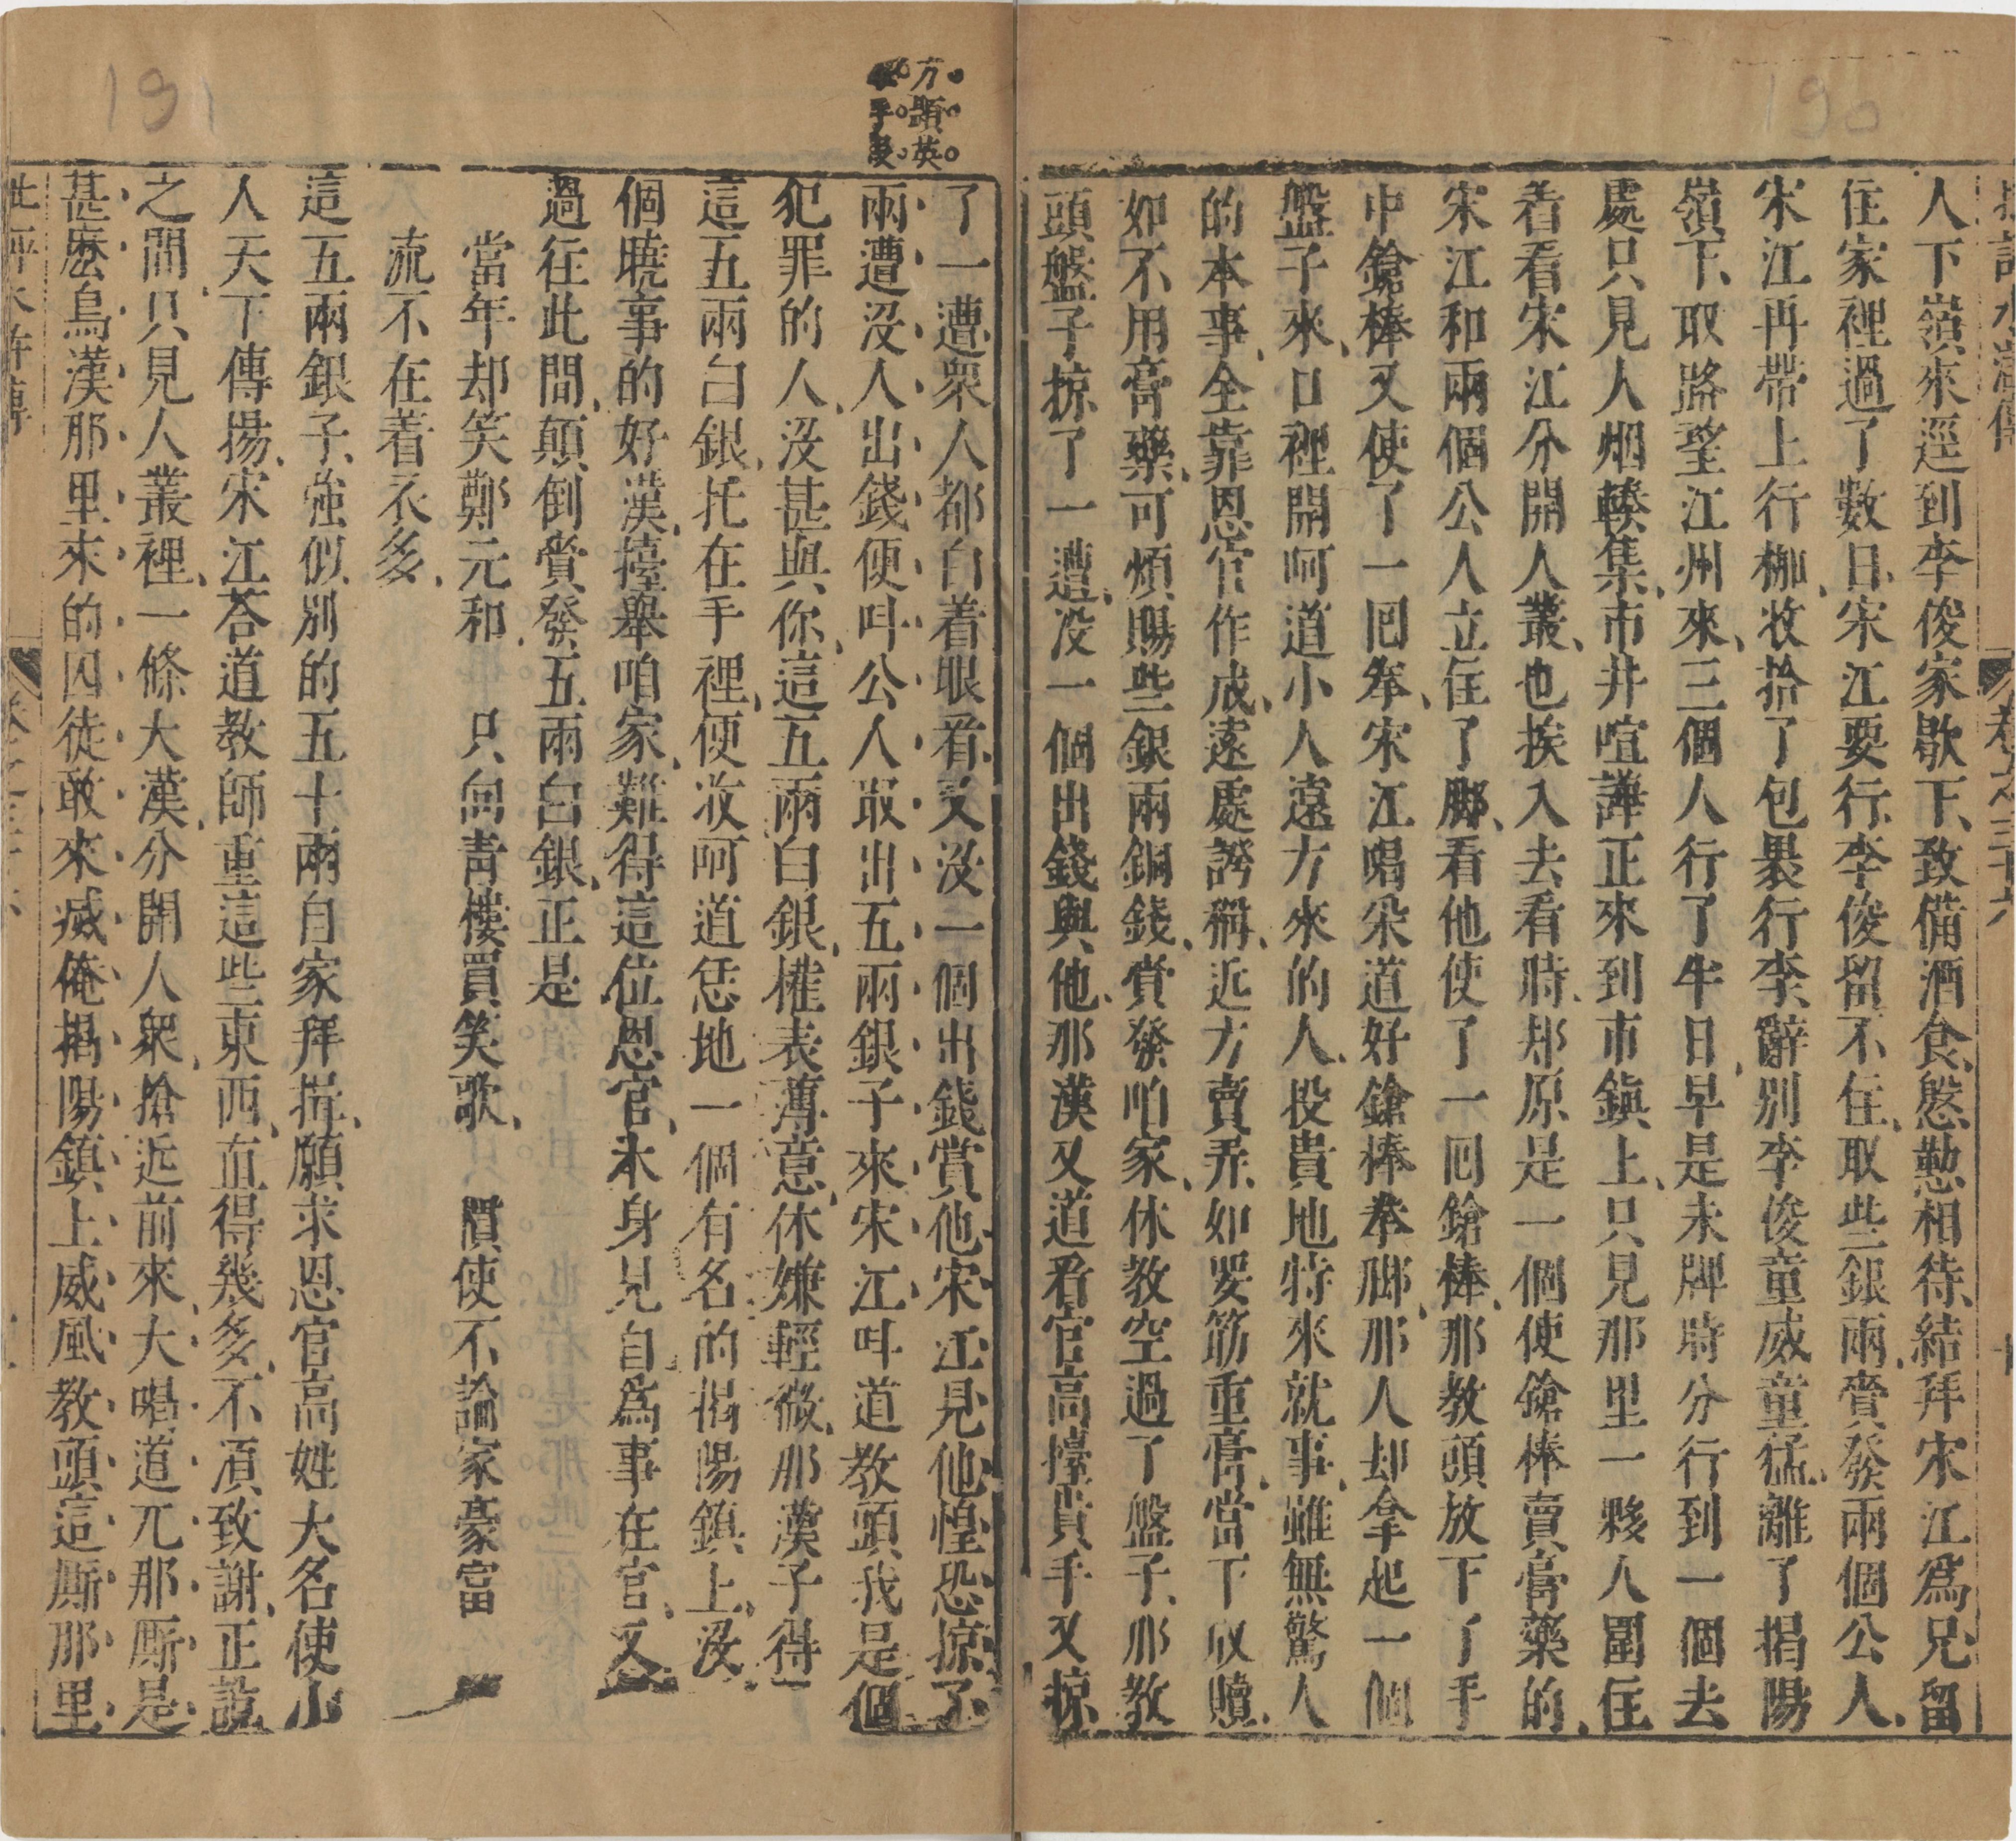 190
人下嶺來逕到李俊家歇下、致備酒食、慇懃相待、結拜宋江爲兄、留
住家裡過了數日、宋江要行、李俊留不住、取些銀兩、賫發兩個公人、
宋江再帶上行枷、收拾了包裹行李、辭別李俊童威童猛、離了揭陽
嶺下、取路望江州來、三個人行了半日、早是未牌時分行到一個去
處只見人烟輳集、市井喧譁正來到市鎮上、只見那里一夥人圍住
着看宋江分開人叢、也挨入去看時、却原是一個使鎗棒賣膏藥的、
宋江和兩個公人立住了脚、看他使了一回鎗棒、那教頭放下了手
中鎗棒又使了一回拳、宋江喝采道好鎗棒拳脚、那人却拿起一個
盤子來、口裡開呵道小人遠方來的人、投貴地特來就事、雖無驚人
的本事、全靠恩官作成、遠處誇稱、近方賣弄、如要筋重膏、當下取贖、
如不用膏藥、可煩賜些銀兩銅錢、賫發咱家、休教空過了盤子、那教
頭盤子掠了一遭、没一個出錢與他、那漢又道看官高擡貴手又掠
191
了一遭衆人都白着眼看、又没一個出錢賞他、宋江見他惶恐掠了
兩遭没人出錢便叫公人取出五兩銀子來宋江叫道教頭我是個
犯罪的人、没甚與你、這五兩白銀、權表薄意、休嫌輕微、那漢子得
這五兩白銀、托在手裡、便收呵道恁地一個有名的揭陽鎮上、没
個曉事的好漢、擡舉咱家、難得這位恩官、本身見自爲事在官、又
過往此間、顛倒賫發五兩白銀、正是
當年却笑鄭元和 只向青樓買笑歌、 慣使不論家豪富
流不在着衣多、
這五兩銀子、強似別的五十兩自家拜揖、願求恩官高姓大名使小
人天下傳揚、宋江荅道教師重這些東西、直得幾多、不須致謝、正說
之間、只見人叢裡、一條大漢、分開人衆、搶近前來、大喝道兀那厮是
甚麽鳥漢那里來的囚徒敢來滅俺揭陽鎮上威風教頭這厮那里